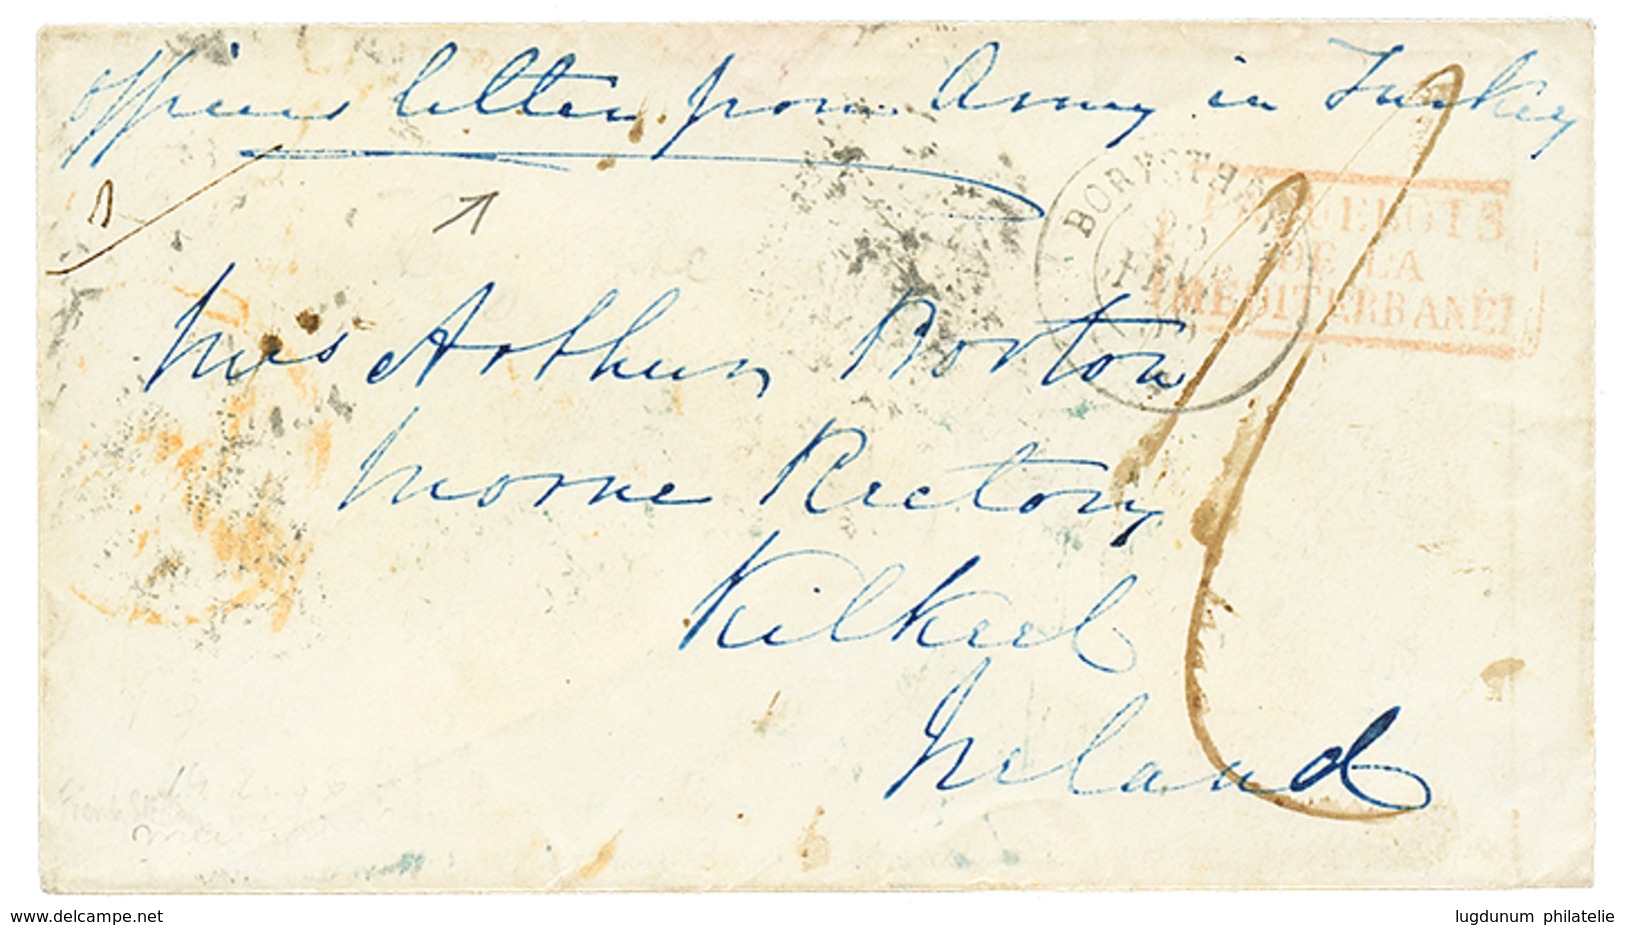 officers letter from Army in Turkey
BORYSTHENE
PAQUEBOTS
DE LA
MEDITERRANÉE
Mrs Arthur Norton
Morne Rectory
Kilkeel
Ireland
www.delcampe.net
lugdunum philatelie